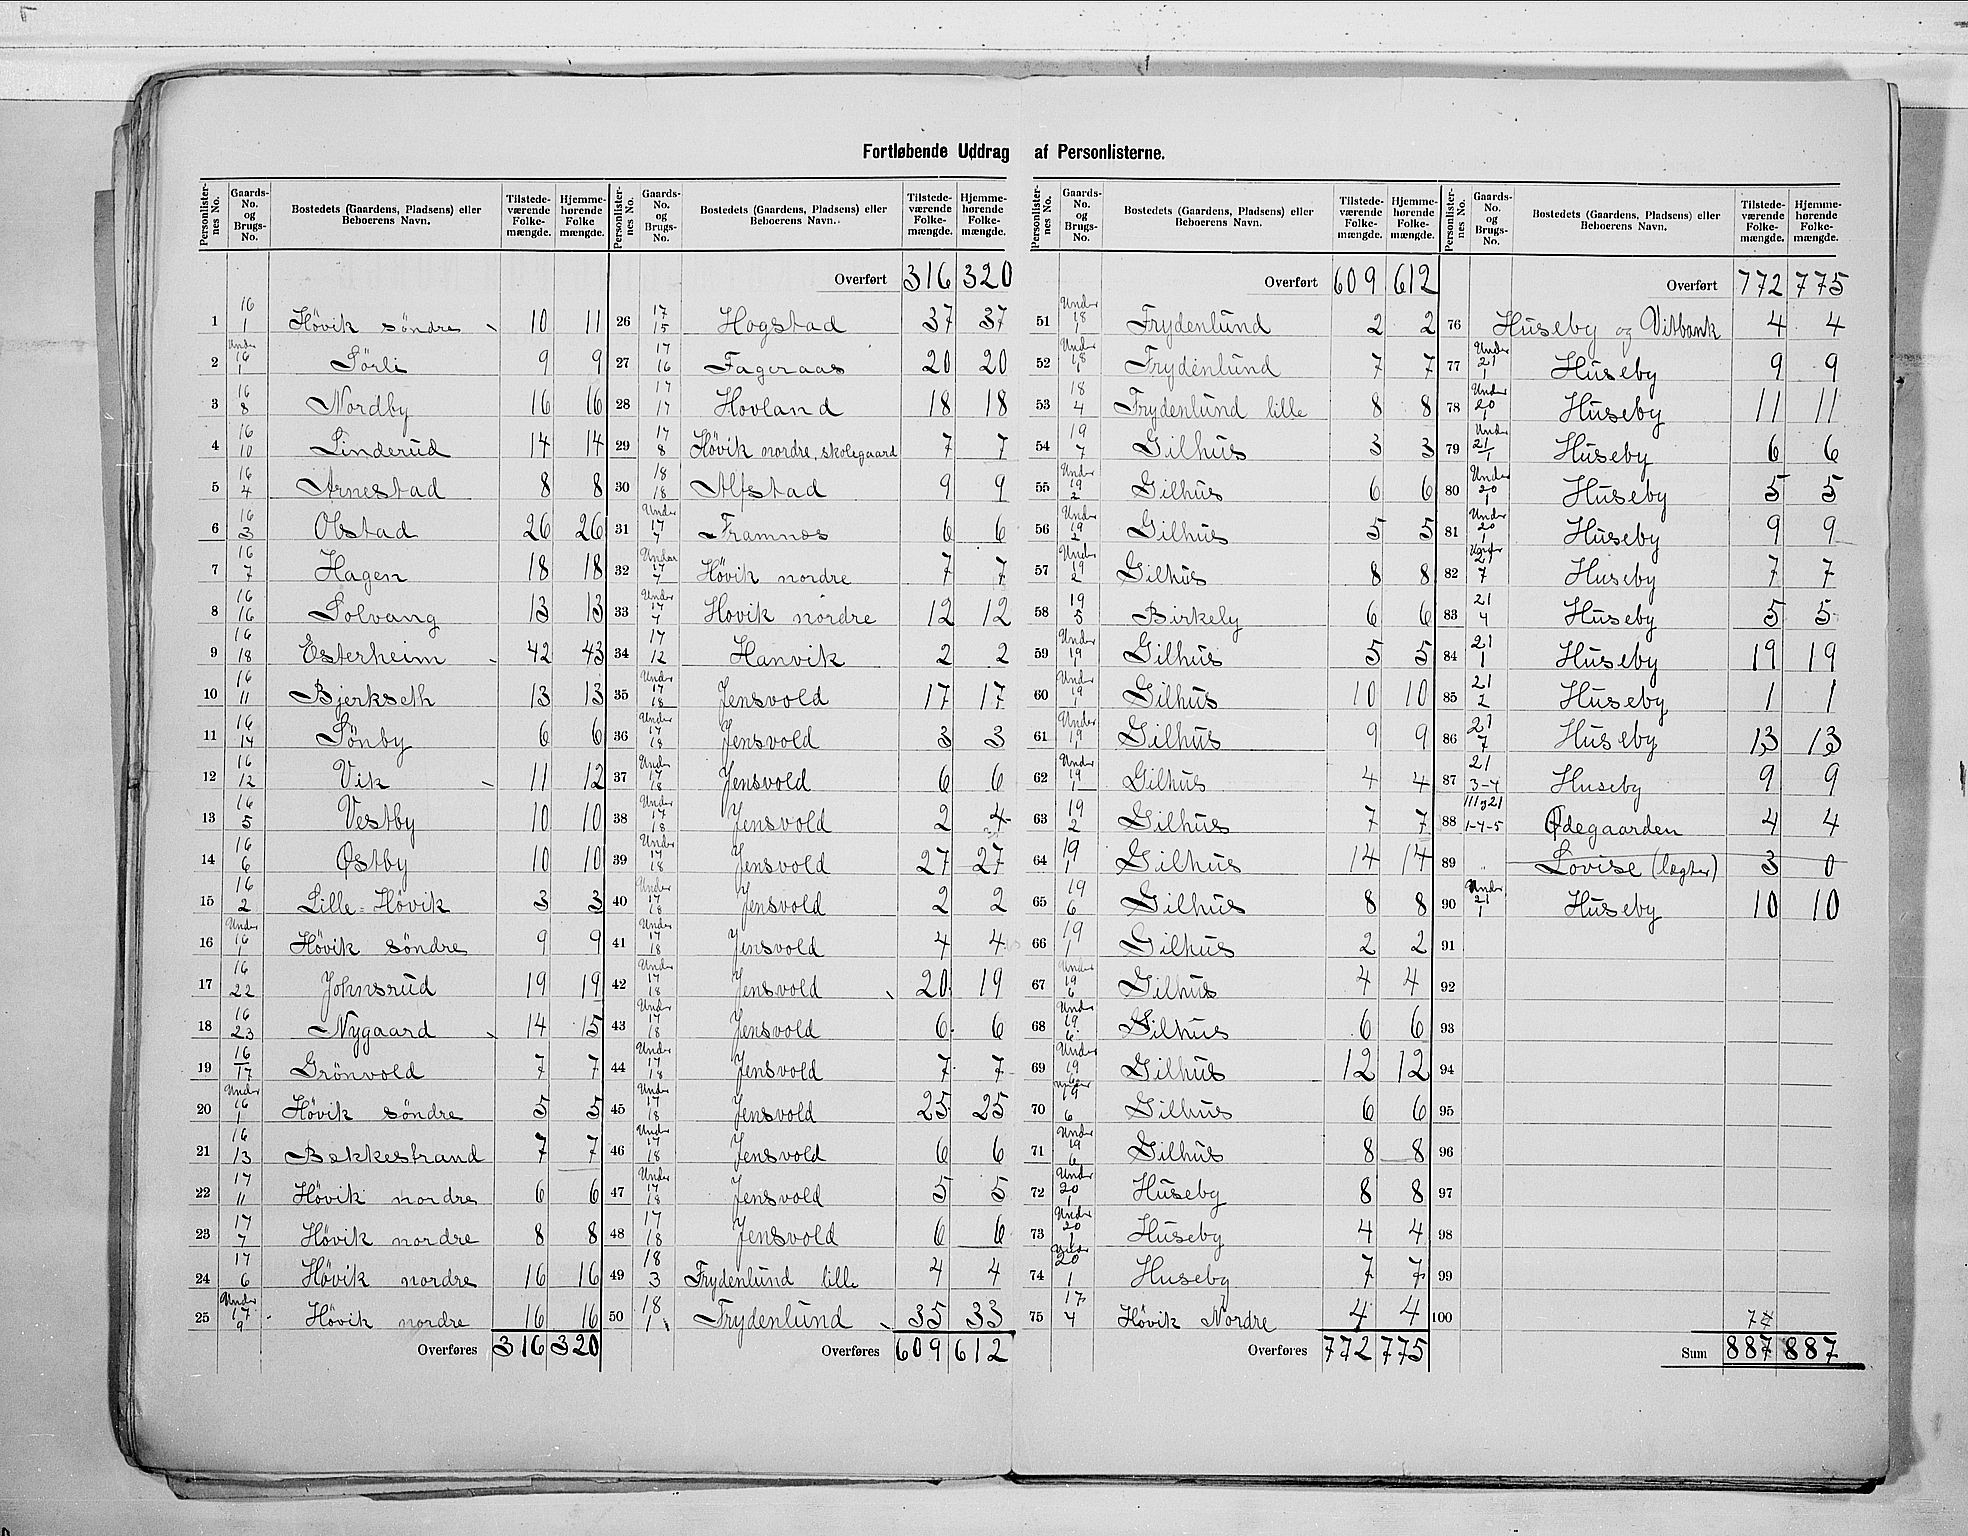 Fortløbende Uddrag af Personlisterne.
Personlister-nes No. | Gaards-No. og Brugs-No. | Bostedets (Gaardens, Pladsens) eller Beboerens Navn. | Tilstede-værende Folke-mængde. | Hjemme-hørende Folke mængde.
1 | 16 1 | Høvik söndre | 10 | 11
2 | Under 16 1 | Sörli | 9 | 9
3 | 16 8 | Nordby | 16 | 16
4 | 16 10 | Linderud | 14 | 14
5 | 16 4 | Arnestad | 8 | 8
6 | 16 3 | Obstad | 26 | 26
7 | 16 7 | Hagen | 18 | 18
8 | 16 16 | Solvang | 13 | 13
9 | 16 18 | Esterheim | 42 | 43
10 | 16 11 | Bjerkseth | 13 | 13
11 | 16 14 | Sönby | 6 | 6
12 | 16 12 | Vik | 11 | 12
13 | 16 5 | Vestby | 10 | 10
14 | 16 6 | Østby | 10 | 10
15 | 16 2 | Lille-Høvik | 3 | 3
16 | Under 16 1 | Høvik söndre | 9 | 9
17 | 16 22 | Johnsrud | 19 | 19
18 | 16 23 | Nygaard | 14 | 15
19 | 16 17 | Grönvold | 7 | 7
20 | Under 16 1 | Høvik söndre | 5 | 5
21 | 16 13 | Bakkestrand | 7 | 7
22 | 17 11 | Høvik nordre | 6 | 6
23 | 17 7 | Høvik nordre | 8 | 8
24 | 17 6 | Høvik nordre | 16 | 16
25 | Under 17 9 | Høvik nordre | 16 | 16
Overføres 316 320
Personlister-nes No. | Gaards-No. og Brugs-No. | Bostedets (Gaardens, Pladsens) eller Beboerens Navn. | Tilstede-værende Folke-mængde. | Hjemme-hørende Folke-mængde.
Overført 316 320
26 | 17 15 | Hogstad | 37 | 37
27 | 17 16 | Fageraas | 20 | 20
28 | 17 17 | Hovland | 18 | 18
29 | 17 8 | Høvik nordre, skolegaard | 7 | 7
30 | 18 18 | Alfstad | 9 | 9
31 | Under 17 7 | Framnes | 6 | 6
32 | Under 17 7 | Høvik nordre | 7 | 7
33 | Under 17 7 | Hovik nordre | 12 | 12
34 | 17 12 | Hanvik | 2 | 2
35 | Under 17 18 | Jensvold | 17 | 17
36 | Under 17 18 | Jensvold | 3 | 3
37 | Under 17 18 | Jensvold | 6 | 6
38 | Under 17 18 | Jensvold | 2 | 4
39 | Under 17 18 | Jensvold | 27 | 27
40 | Under 17 18 | Jensvold | 2 | 2
41 | Under 17 18 | Jensvold | 4 | 4
42 | Under 17 18 | Jensvold | 20 | 19
43 | Under 17 18 | Jensvold | 6 | 6
44 | Under 17 18 | Jensvold | 7 | 7
45 | Under 17 18 | Jensvold | 25 | 25
46 | Under 17 18 | Jensvold | 6 | 6
47 | Under 17 18 | Jensvold | 5 | 5
48 | 17 18 | Jensvold | 6 | 6
49 | 18 3 | Frydenlund lille | 4 | 4
50 | 18 1 | Frydenlund | 35 | 33
Overføres 609 612
Personlister-nes No. | Gaards-No. og Brugs-No. | Bostedets (Gaardens, Pladsens) eller Beboerens Navn. | Tilstede-værende Folke-mængde. | Hjemme-hørende Folke-mængde.
Overført 609 612
51 | Under 18 1 | Frydenlund | 2 | 2
52 | Under 18 1 | Frydenlund | 7 | 7
53 | 18 4 | Frydenlund lille | 8 | 8
54 | 19 7 | Gilhus | 3 | 3
55 | Under 19 2 | Gilhus | 6 | 6
56 | Under 19 2 | Gilhus | 5 | 5
57 | Under 19 2 | Gilhus | 8 | 8
58 | 19 5 | Birkely | 6 | 6
59 | Under 19 1 | Gilhus | 5 | 5
60 | Under 19 1 | Gilhus | 10 | 10
61 | Under 19 1 | Gilhus | 9 | 9
62 | Under 19 1 | Gilhus | 4 | 4
63 | 19 2 | Gilhus | 7 | 7
64 | 19 1 | Gilhus | 14 | 14
65 | 19 6 | Gilhus | 8 | 8
66 | 19 1 | Gilhus | 2 | 2
67 | Under 19 6 | Gilhus | 4 | 4
68 | Under 19 6 | Gilhus | 6 | 6
69 | Under 19 6 | Gilhus | 12 | 12
70 | Under 19 6 | Gilhus | 6 | 6
71 | Under 19 6 | Gilhus | 8 | 8
72 | Under 20 1 | Huseby | 8 | 8
73 | Under 20 1 | Huseby | 4 | 4
74 | Under 20 1 | Huseby | 7 | 7
75 | 17 4 | Høvik Nordre | 4 | 4
Overføres 772 775
Personlister-nes No. | Gaards-No. og Brugs-No. | Bostedets (Gaardens, Pladsens) eller Beboerens Navn. | Tilstede-værende Folke-mængde. | Hjemme-hørende Folke-mængde.
Overført 772 775
76 | Huseby og Vitbank | 4 | 4
77 | Under 21 1 | Huseby | 9 | 9
78 | Under 20 1 | Huseby | 11 | 11
79 | Under 21 1 | Huseby | 6 | 6
80 | Under 20 1 | Huseby | 5 | 5
81 | Under 20 1 | Huseby | 9 | 9
82 | Under 21 7 | Huseby | 7 | 7
83 | 21 4 | Huseby | 5 | 5
84 | 21 1 | Huseby | 19 | 19
85 | 21 2 | Huseby | 1 | 1
86 | 21 7 | Huseby | 13 | 13
87 | 21 3-4 | Huseby | 9 | 9
88 | 111 og 21 1-4-5 | Ødegaarden | 4 | 4
89 | Lovise (lægter) | 3 | 0
90 | Under 21 1 | Huseby | 10 | 10
91
92
93
94
95
96
97
98
99
100
Sum 887 887